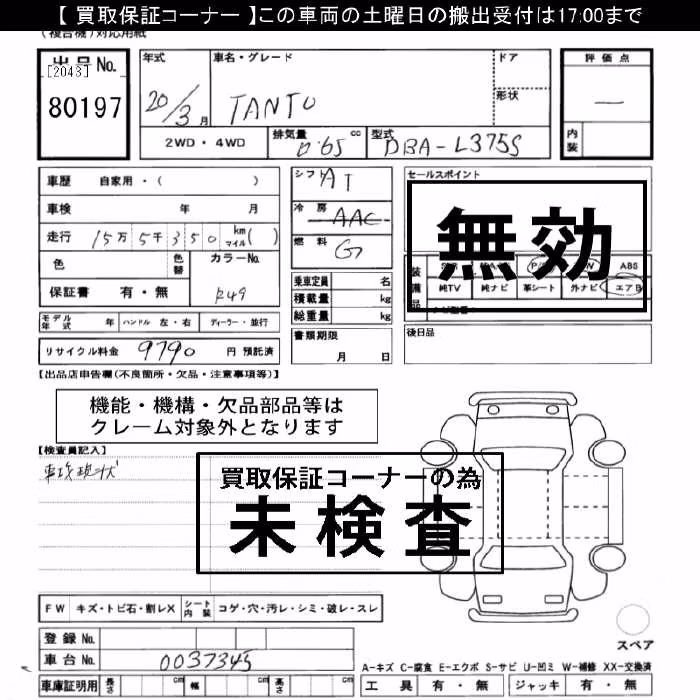 【 買取保証コーナー 】この車両の土曜日の搬出受付は17:00まで
(複合機)対応用紙
出品No. 年式 車名・グレード ドア 評価点
[2043]
80197 20/3月 TANTO 形状 —
2WD・4WD 排気量 0.65 cc 型式 DBA-L375S 内装
車歴 自家用・( ) シフト AT セールスポイント
車検 年 月 冷房 AAC
無効
走行 15万5千350 km マイル( ) 燃料 G
色 色替 カラーNo. 装備品 P/S P/W ABS
保証書 有・無 R49 乗車定員 名 純TV 純ナビ 革シート 外ナビ エアB
積載量 kg
モデル年式 年 ハンドル 左・右 ディーラー・並行 総重量 kg
リサイクル料金 9790 円 預託済 書類期限 月 日 後日品
【出品店申告欄(不良箇所・欠品・注意事項等)】
機能・機構・欠品部品等は
クレーム対象外となります
【検査員記入】
車攻現状
買取保証コーナーの為
未検査
FW キズ・トビ石・割レX シート内装 コゲ・穴・汚レ・シミ・破レ・スレ
登録No. スペア
車台No. 0037345
A-キズ C-腐食 E-エクボ S-サビ U-凹ミ W-補修 XX-交換済
車庫証明用 長さ cm 幅 cm 高さ cm 工具 有・無 ジャッキ 有・無